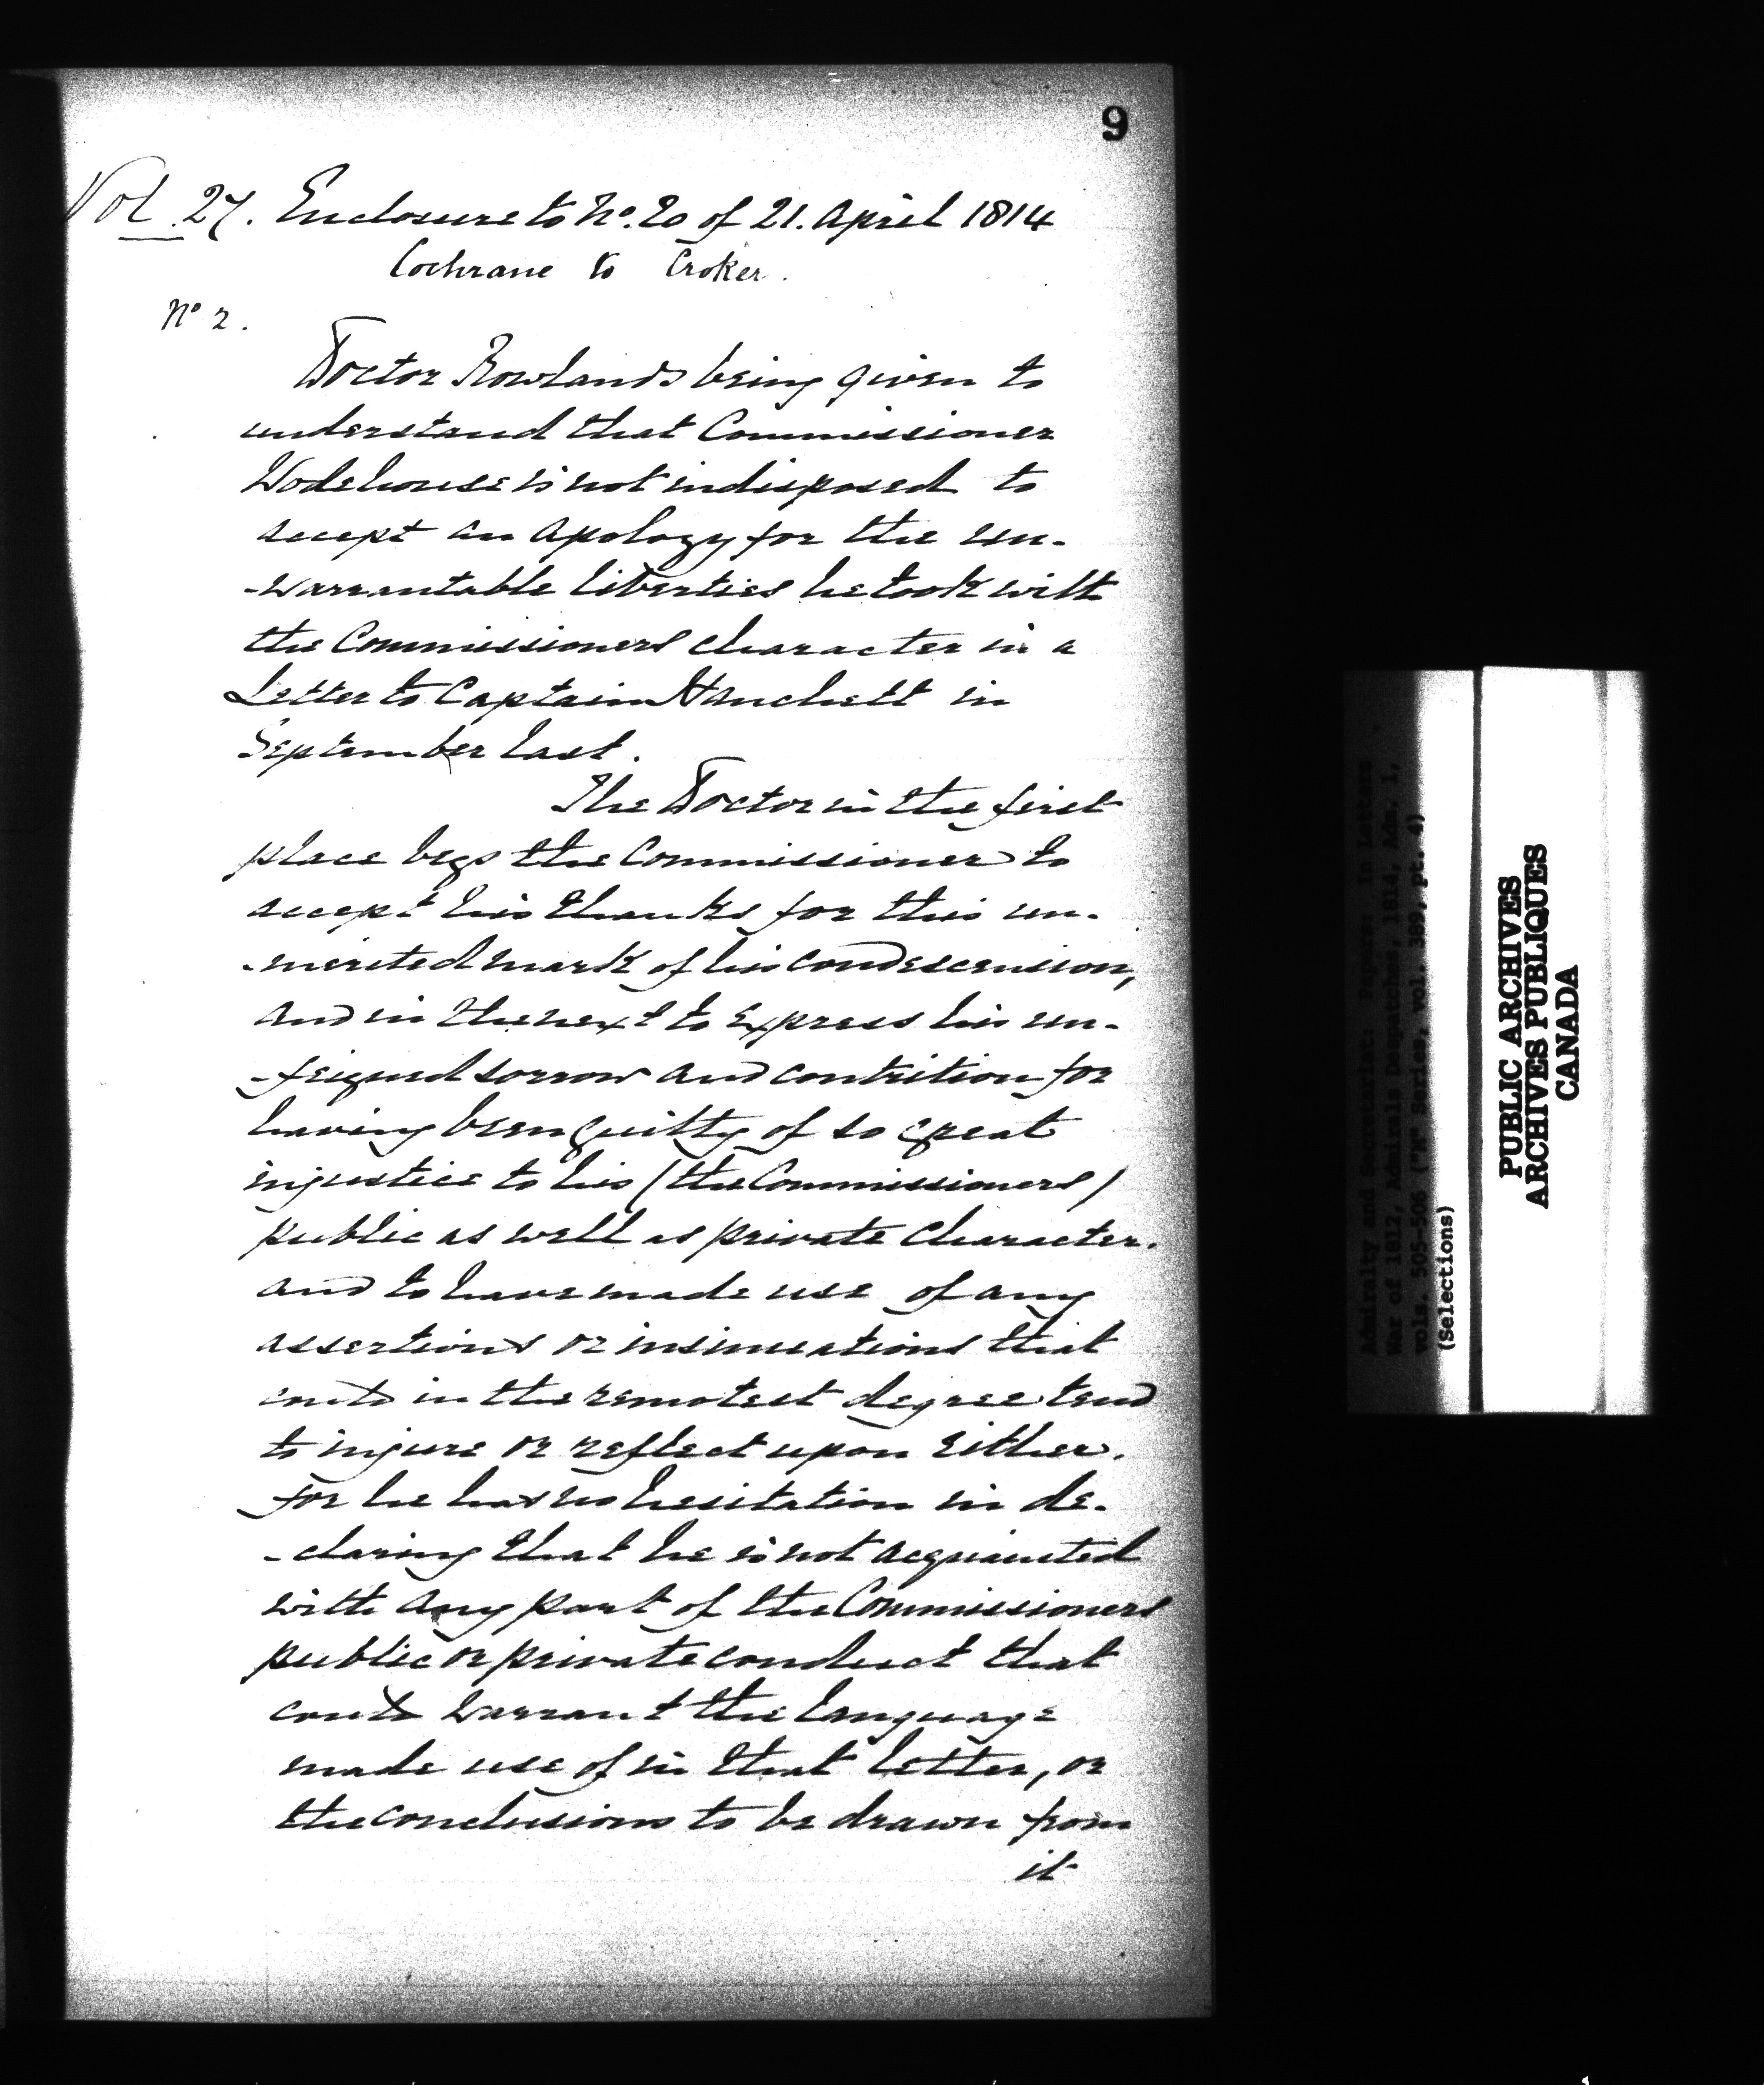 9
Vol. 27. Enclosure to No. 20 of 21. April 1814
Cochrane to Croker.
No 2.
Doctor Rowlands being given to
understand that Commissioner
Wodehouse is not indisposed to
accept an apology for the un-
-warrantable liberties he took with
the Commissioners character in a
Letter to Captain Hanchett in
September last.
The Doctor in the first
place begs the Commissioner to
accept his thanks for this un-
-merited mark of his condescension,
and in the next to express his un-
-feigned sorrow and contrition for
having been guilty of so great
injustice to his (the Commissioners)
public as well as private character.
and to have made use of any
assertions or insinuations that
could in the remotest degree tend
to injure or reflect upon either.
for he has no hesitation in de-
-claring that he is not acquainted
with any part of the Commissioners
public or private conduct that
could warrant the language
made use of in that letter, or
the conclusions to be drawn from
it
Admiralty and Secretariat: Papers: In Letters
War of 1812, Admirals Despatches, 1814, Adm. 1,
vols. 505-506 ("M" Series, vol. 389, pt. 4)
(Selections)
PUBLIC ARCHIVES
ARCHIVES PUBLIQUES
CANADA